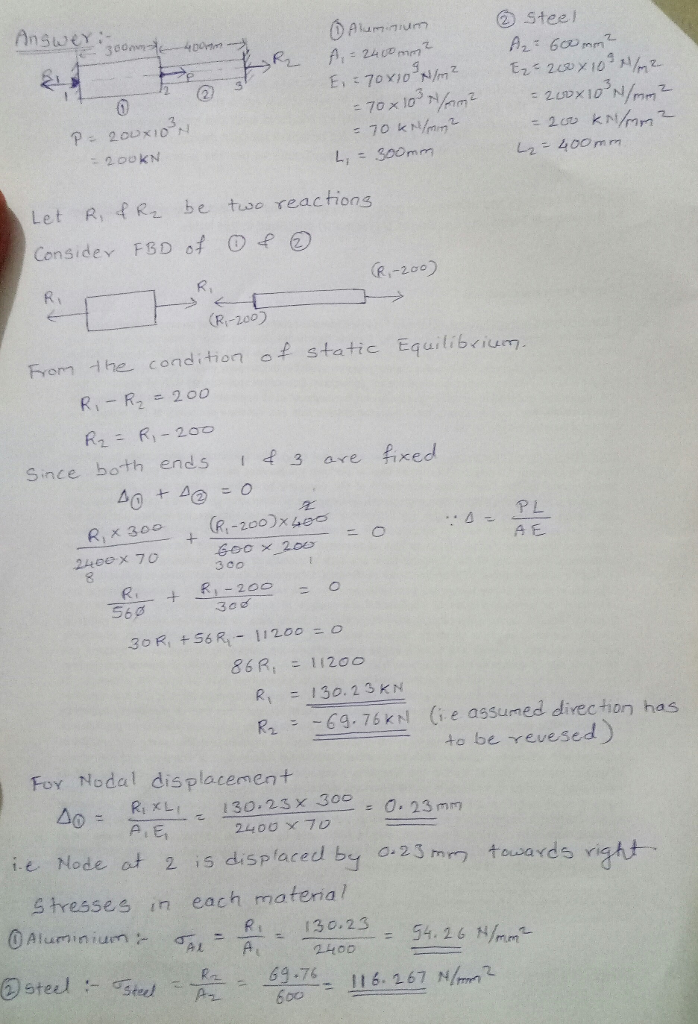 Answer :-
300mm 400mm
R1 R2
1 2 P 3
① ②
P = 200x10³ N
= 200KN
① Aluminium
A₁ = 2400mm²
E₁ = 70x10⁹ N/m²
= 70x10³ N/mm²
= 70 KN/mm²
L₁ = 300mm
② Steel
A₂ = 600mm²
E₂ = 200x10⁹ N/m²
= 200x10³ N/mm²
= 200 KN/mm²
L₂ = 400mm
Let R₁ & R₂ be two reactions
Consider FBD of ① & ②
R₁ R₁ (R₁-200) (R₁-200)
From the condition of static Equilibrium.
R₁ - R₂ = 200
R₂ = R₁ - 200
Since both ends 1 & 3 are fixed
Δ① + Δ② = 0
R₁ x 300 / 2400 x 70 + (R₁-200) x 400 / 600 x 200 = 0 ∵ Δ = PL / AE
8 2 300 1
R₁ / 560 + R₁-200 / 300 = 0
30R₁ + 56R₁ - 11200 = 0
86R₁ = 11200
R₁ = 130.23KN
R₂ = -69.76KN (i.e assumed direction has
to be revesed)
For Nodal displacement
Δ① = R₁xL₁ / A₁E₁ = 130.23 x 300 / 2400 x 70 = 0.23mm
i.e Node at 2 is displaced by 0.23mm towards right
Stresses in each material
① Aluminium :- σAl = R₁ / A₁ = 130.23 / 2400 = 54.26 N/mm²
② Steel :- σSteel = R₂ / A₂ = 69.76 / 600 = 116.267 N/mm²